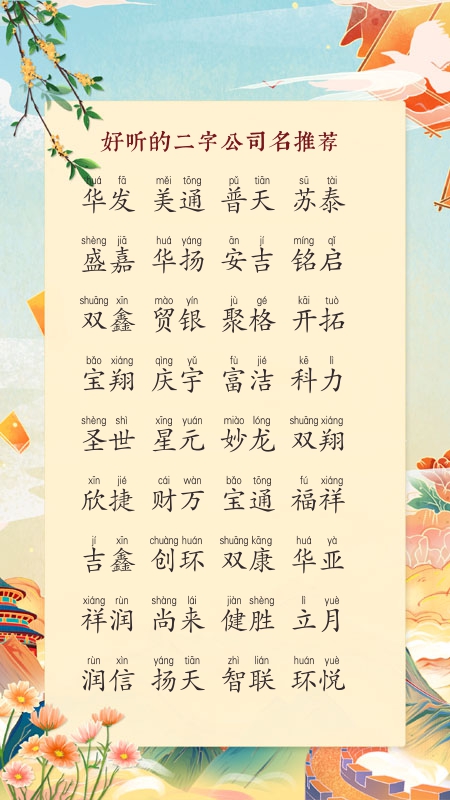 好听的二字公司名推荐
huá fā měi tōng pǔ tiān sū tài
华发 美通 普天 苏泰
shèng jiā huá yáng ān jí míng qǐ
盛嘉 华扬 安吉 铭启
shuāng xīn mào yín jù gé kāi tuò
双鑫 贸银 聚格 开拓
bǎo xiáng qìng yǔ fù jié kē lì
宝翔 庆宇 富洁 科力
shèng shì xīng yuán miào lóng shuāng xiáng
圣世 星元 妙龙 双翔
xīn jié cái wàn bǎo tōng fú xiáng
欣捷 财万 宝通 福祥
jí xīn chuàng huán shuāng kāng huá yà
吉鑫 创环 双康 华亚
xiáng rùn shàng lái jiàn shèng lì yuè
祥润 尚来 健胜 立月
rùn xìn yáng tiān zhì lián huán yuè
润信 扬天 智联 环悦